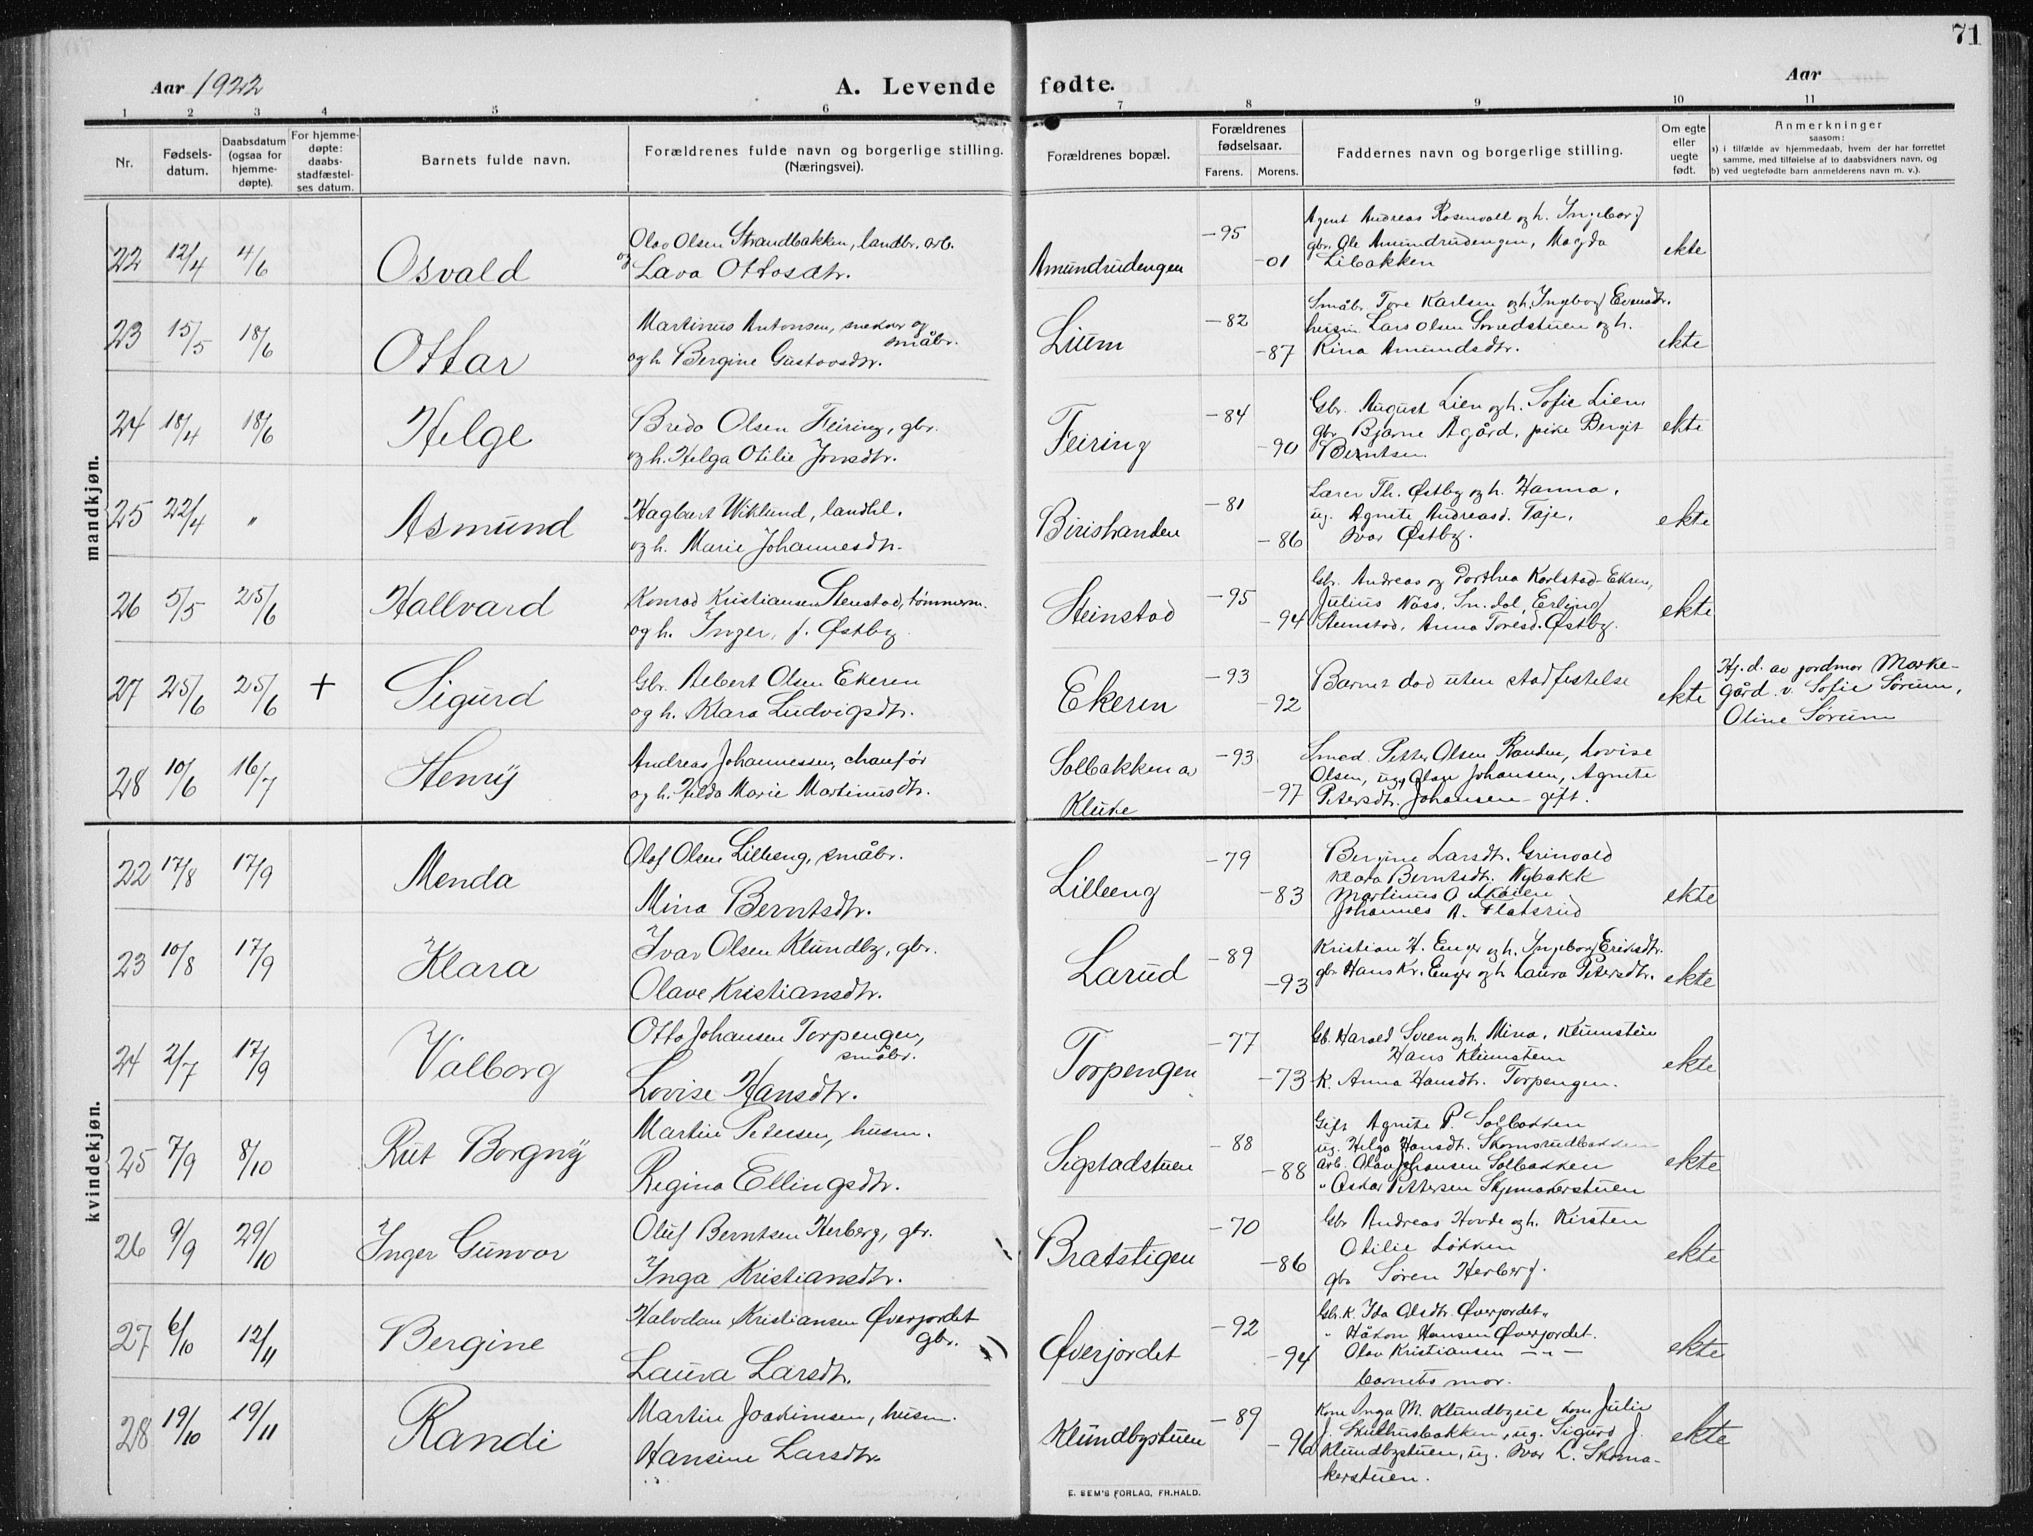 71
Aar 1922
A. Levende fødte.
Aar
1 2 3 4 5 6 7 8 9 10 11
Nr.
Fødsels-
datum.
Daabsdatum
(ogsaa for
hjemme-
døpte).
For hjemme-
døpte:
daabs-
stadfæstel-
ses datum.
Barnets fulde navn.
Forældrenes fulde navn og borgerlige stilling.
(Næringsvei).
Forældrenes bopæl.
Forældrenes
fødselsaar.
Farens. Morens.
Faddernes navn og borgerlige stilling.
Om egte
eller
uegte
født.
Anmerkninger
saasom:
a) i tilfælde av hjemmedaab, hvem der har forrettet
samme, med tilføielse af to daabsvidners navn, og
b) ved uegtefødte barn anmelderens navn m. v.).
mandkjøn.
22 12/4 4/6 Osvald
Olav Olsen Strandbakken, landbr. arb.
og Lava Ottosdtr.
Amundrudengen
-95 -01
Agent Andreas Rosenvall og h. Ingeborg
gbr. Ole Amundrudengen, Magda
Libakken
ekte
23 15/5 18/6 Ottar
Martinus Antonsen, snekker og
småbr.
og h. Bergine Gustavsdtr.
Lium
-82 -87
Småbr. Tore Karlsen og h. Ingeborg Evensdtr.
husm. Lars Olsen Smedstuen og h.
Rina Amundsdtr.
ekte
24 18/4 18/6 Helge
Bredo Olsen Feiring, gbr.
og h. Helga Otilie Jonsdtr.
Feiring
-84 -90
Gbr. August Lien og h. Sofie Lien
gbr. Bjarne Agård, pike Bergit
Berntsen
ekte
25 22/4 " Asmund
Hagbart Wiklund, landhl.
og h. Marie Johannesdtr.
Biristranden
-81 -86
Lærer Th. Østby og h. Hanna,
ug. Agnete Andreasd. Taje,
Ivar Østby.
ekte
26 5/5 25/6 Hallvard
Konrad Kristiansen Stenstad, tømmerm.
og h. Inger, f. Østby.
Steinstad
-95 -94
Gbr. Andreas og Dorthea Karlstad-Ekren,
Julius Næss, Sn.dal, Erling
Stenstad, Anna Toresd. Østby.
ekte
27 25/6 25/6 + Sigurd
Gbr. Albert Olsen Ekeren
og h. Klara Ludvigsdtr.
Ekeren
-93 -92
Barnet død uten stadfestelse
ekte
Hj. d. av jordmor Marke-
gård v. Sofie Sørum,
Oline Sørum
28 10/6 16/7 Henry
Andreas Johannessen, chaufør
og h. Hilda Marie Martinusdtr.
Solbakken av
Kluke
-93 -97
Smed Petter Olsen Randen, Lovise
Olsen, ug. Olav Johansen, Agnete
Petersdtr. Johansen - gift.
kvindekjøn.
22 17/8 17/9 Menda
Olaf Olsen Lilleeng, småbr.
Mina Berntsdtr.
Lilleeng
-79 -83
Bergine Larsdtr. Grinvold
Klara Berntsdtr. Nybakk
Martinus O.
Johannes A. Flatsrud
ekte
23 10/8 17/9 Klara
Ivar Olsen Klundby, gbr.
Olave Kristiansdtr.
Larud
-89 -93
Kristian H. Enger og h. Ingeborg Eriksdtr.
gbr. Hans Kr. Enger og h Laura Petersdtr.
ekte
24 2/7 17/9 Valborg
Otto Johansen Torpengen,
småbr.
Lovise Hansdtr.
Torpengen
-77 -73
Gb. Harald Sveen og h. Mina, Klumstein
Hans Klumstein
K. Anna Hansdtr. Torpengen.
ekte
25 7/9 8/10 Rut Borgny
Martin Petersen, husm.
Regina Ellingsdtr.
Sigstadstuen
-88 -88
Gift Agnete P. Solbakken
ug. Helga Hansdtr. Skomsrudbakken
arb. Olav Johansen Solbakken
" Oskar Pettersen Skjemakerstuen
ekte
26 9/9 29/10 Inger Gunvor
Oluf Berntsen Herberg, gbr.
Inga Kristiansdtr.
Bratstigen
-70 -86
Gbr Andreas Hovde og h. Kirsten
Otilie Løkken
gbr Søren Herberg.
ekte
27 6/10 12/11 Bergine
Halvdan Kristiansen Øverjordet
gbr.
Laura Larsdtr.
Øverjordet
-92 -94
Gbr. K. Ida Olsdtr. Øverjordet
" Håkon Hansen Øverjordet.
Olav Kristiansen - " -
barnets mor.
ekte
28 19/10 19/11 Randi
Martin Joakimsen, husm.
Hansine Larsdtr.
Klundbystuen
-89 -96
Kone Inga M. Klundbyeie kone Julie
J. Skulhusbakken, ug. Sigurd J.
Klundbystuen, ug. Ivar L. Skoma-
kerstuen.
ekte
E. SEM'S FORLAG, FR.HALD.